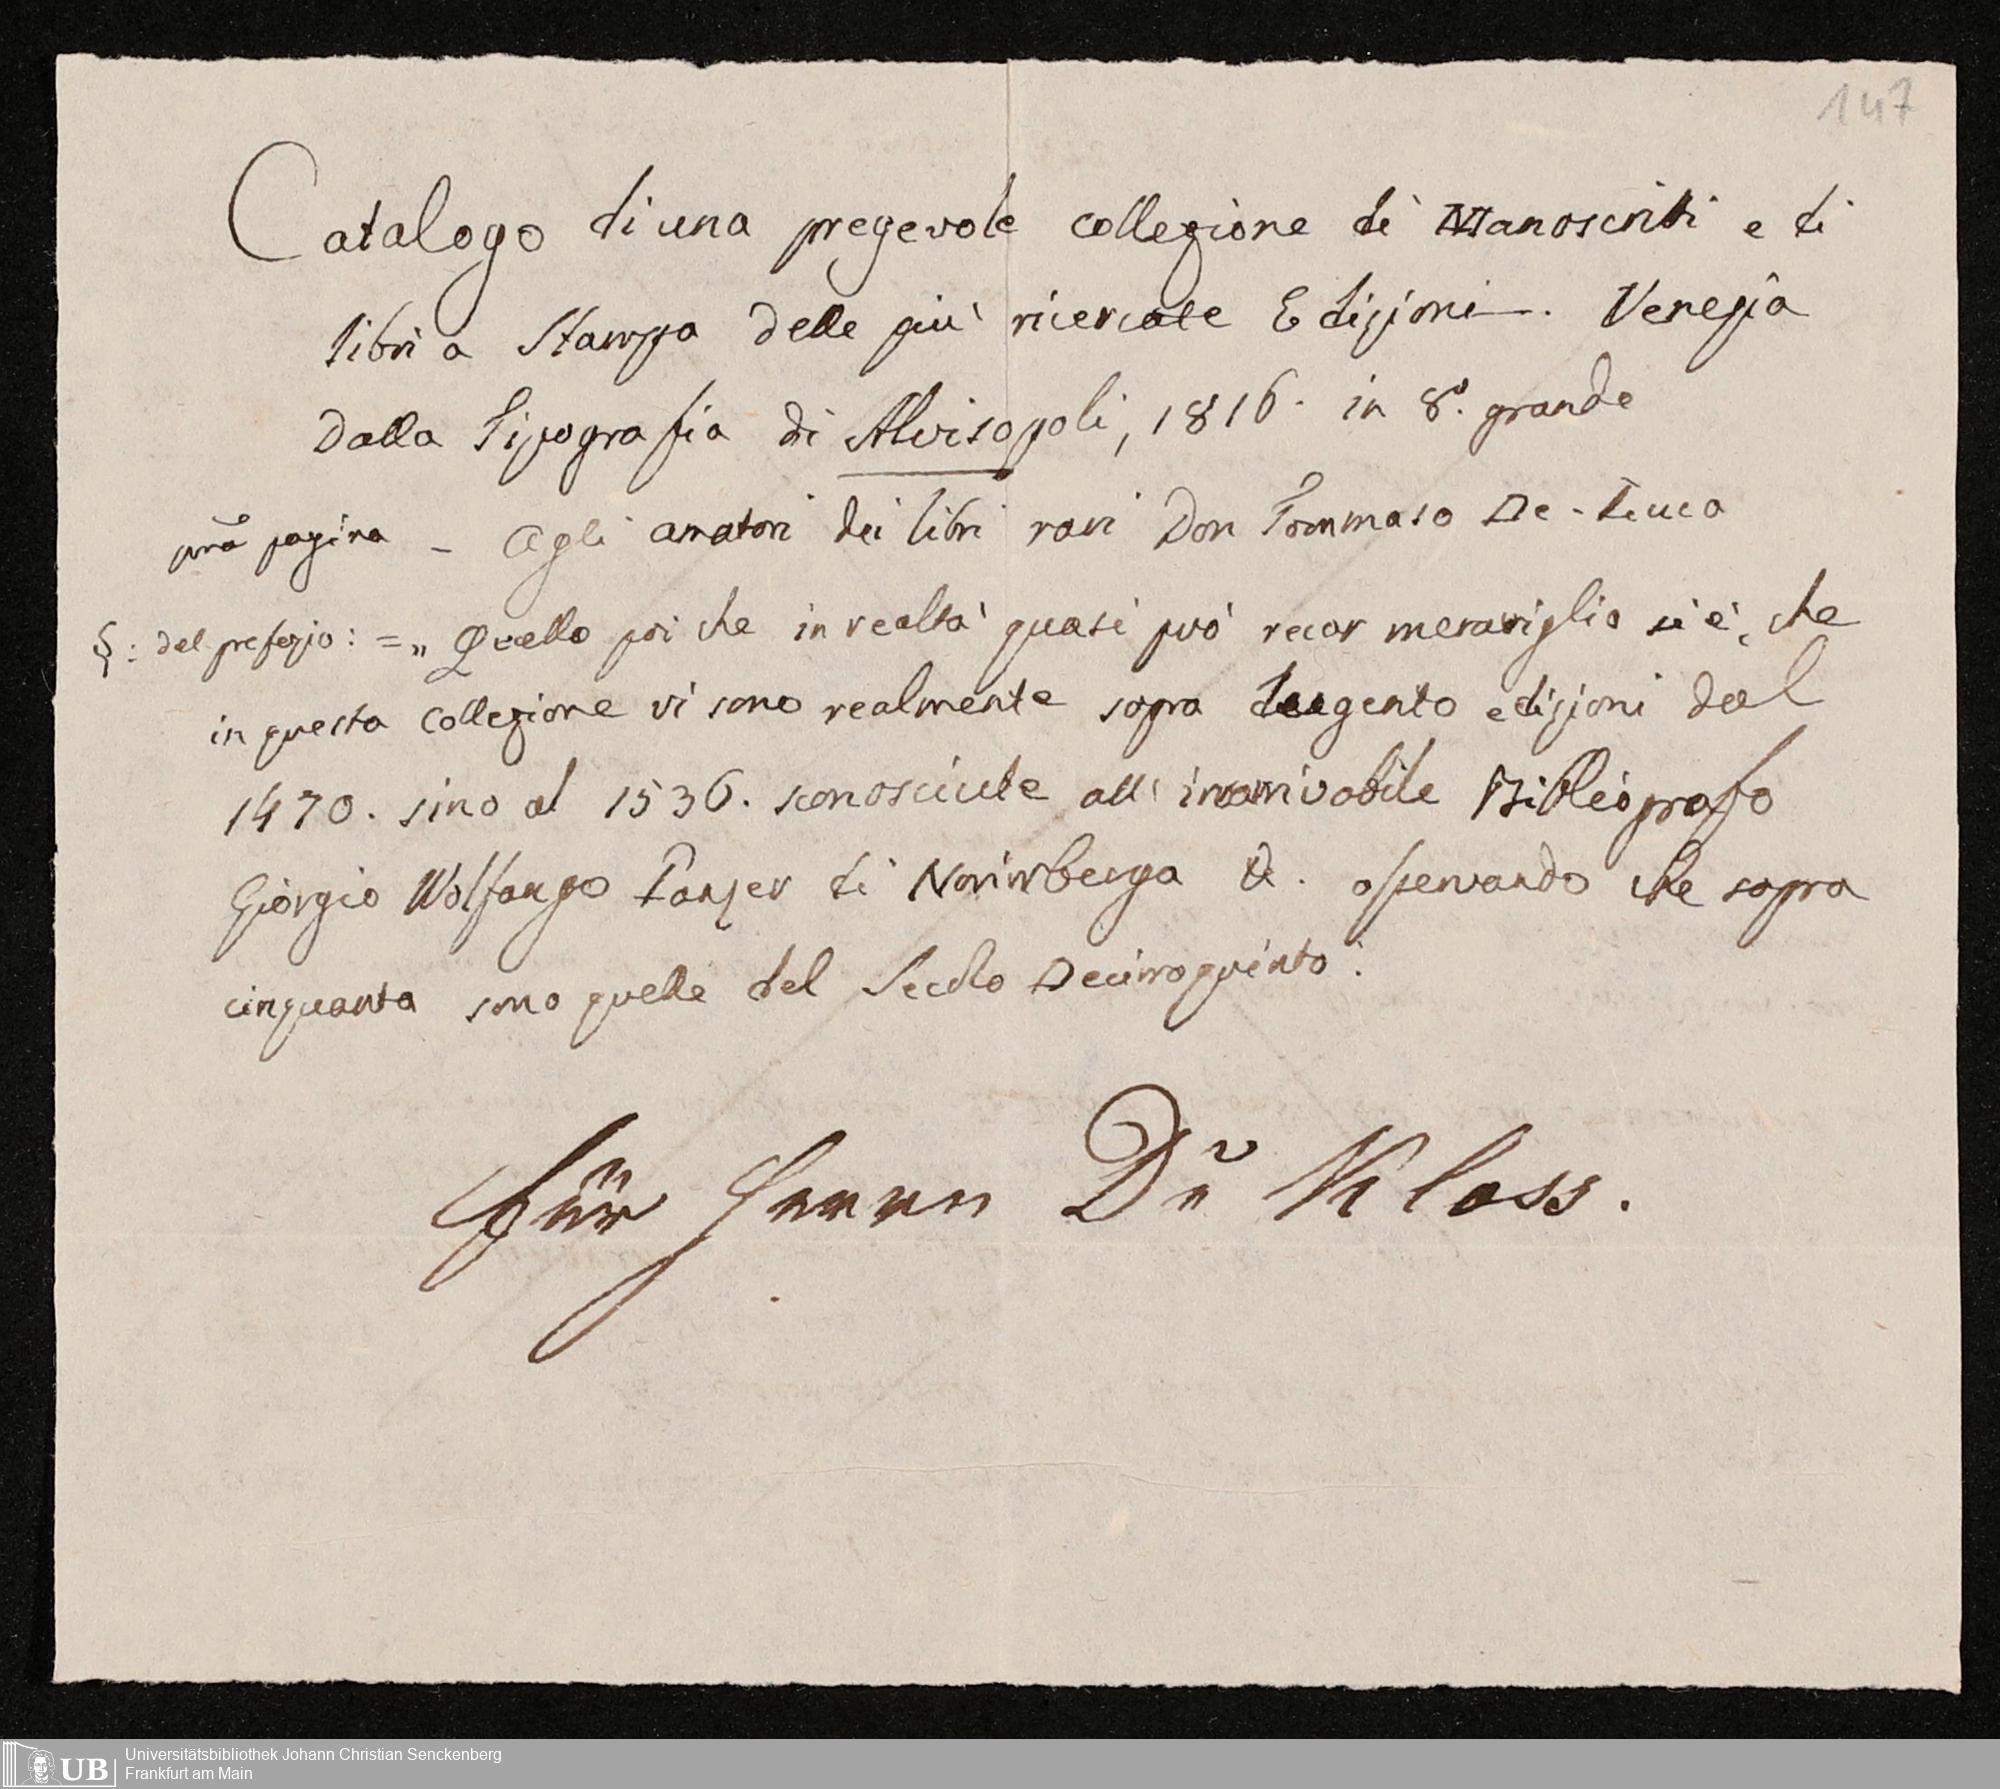 147
Catalogo di una pregevole collezione di Manoscritti e di
libri a Stampa delle più ricercate Edizioni. Venezia
dalla Tipografia di Alvisopoli, 1816. in 8º. grande
pma pagina - Agli amatori dei libri rari Don Tommaso De-Luca
§: del prefazio: = „ Quello poi che in realtà quasi può recar meraviglia si è, che
in questa collezione vi sono realmente sopra edizioni dal
1470. sino al 1536. sconosciute all' Bibliografo
Giorgio Wolfango Panzer di Norimberga &. osservando che sopra
cinquanta sono quelle del Secolo Decimoquinto.
für Herrn Dr Kloss.
UB
Universitätsbibliothek Johann Christian Senckenberg
Frankfurt am Main